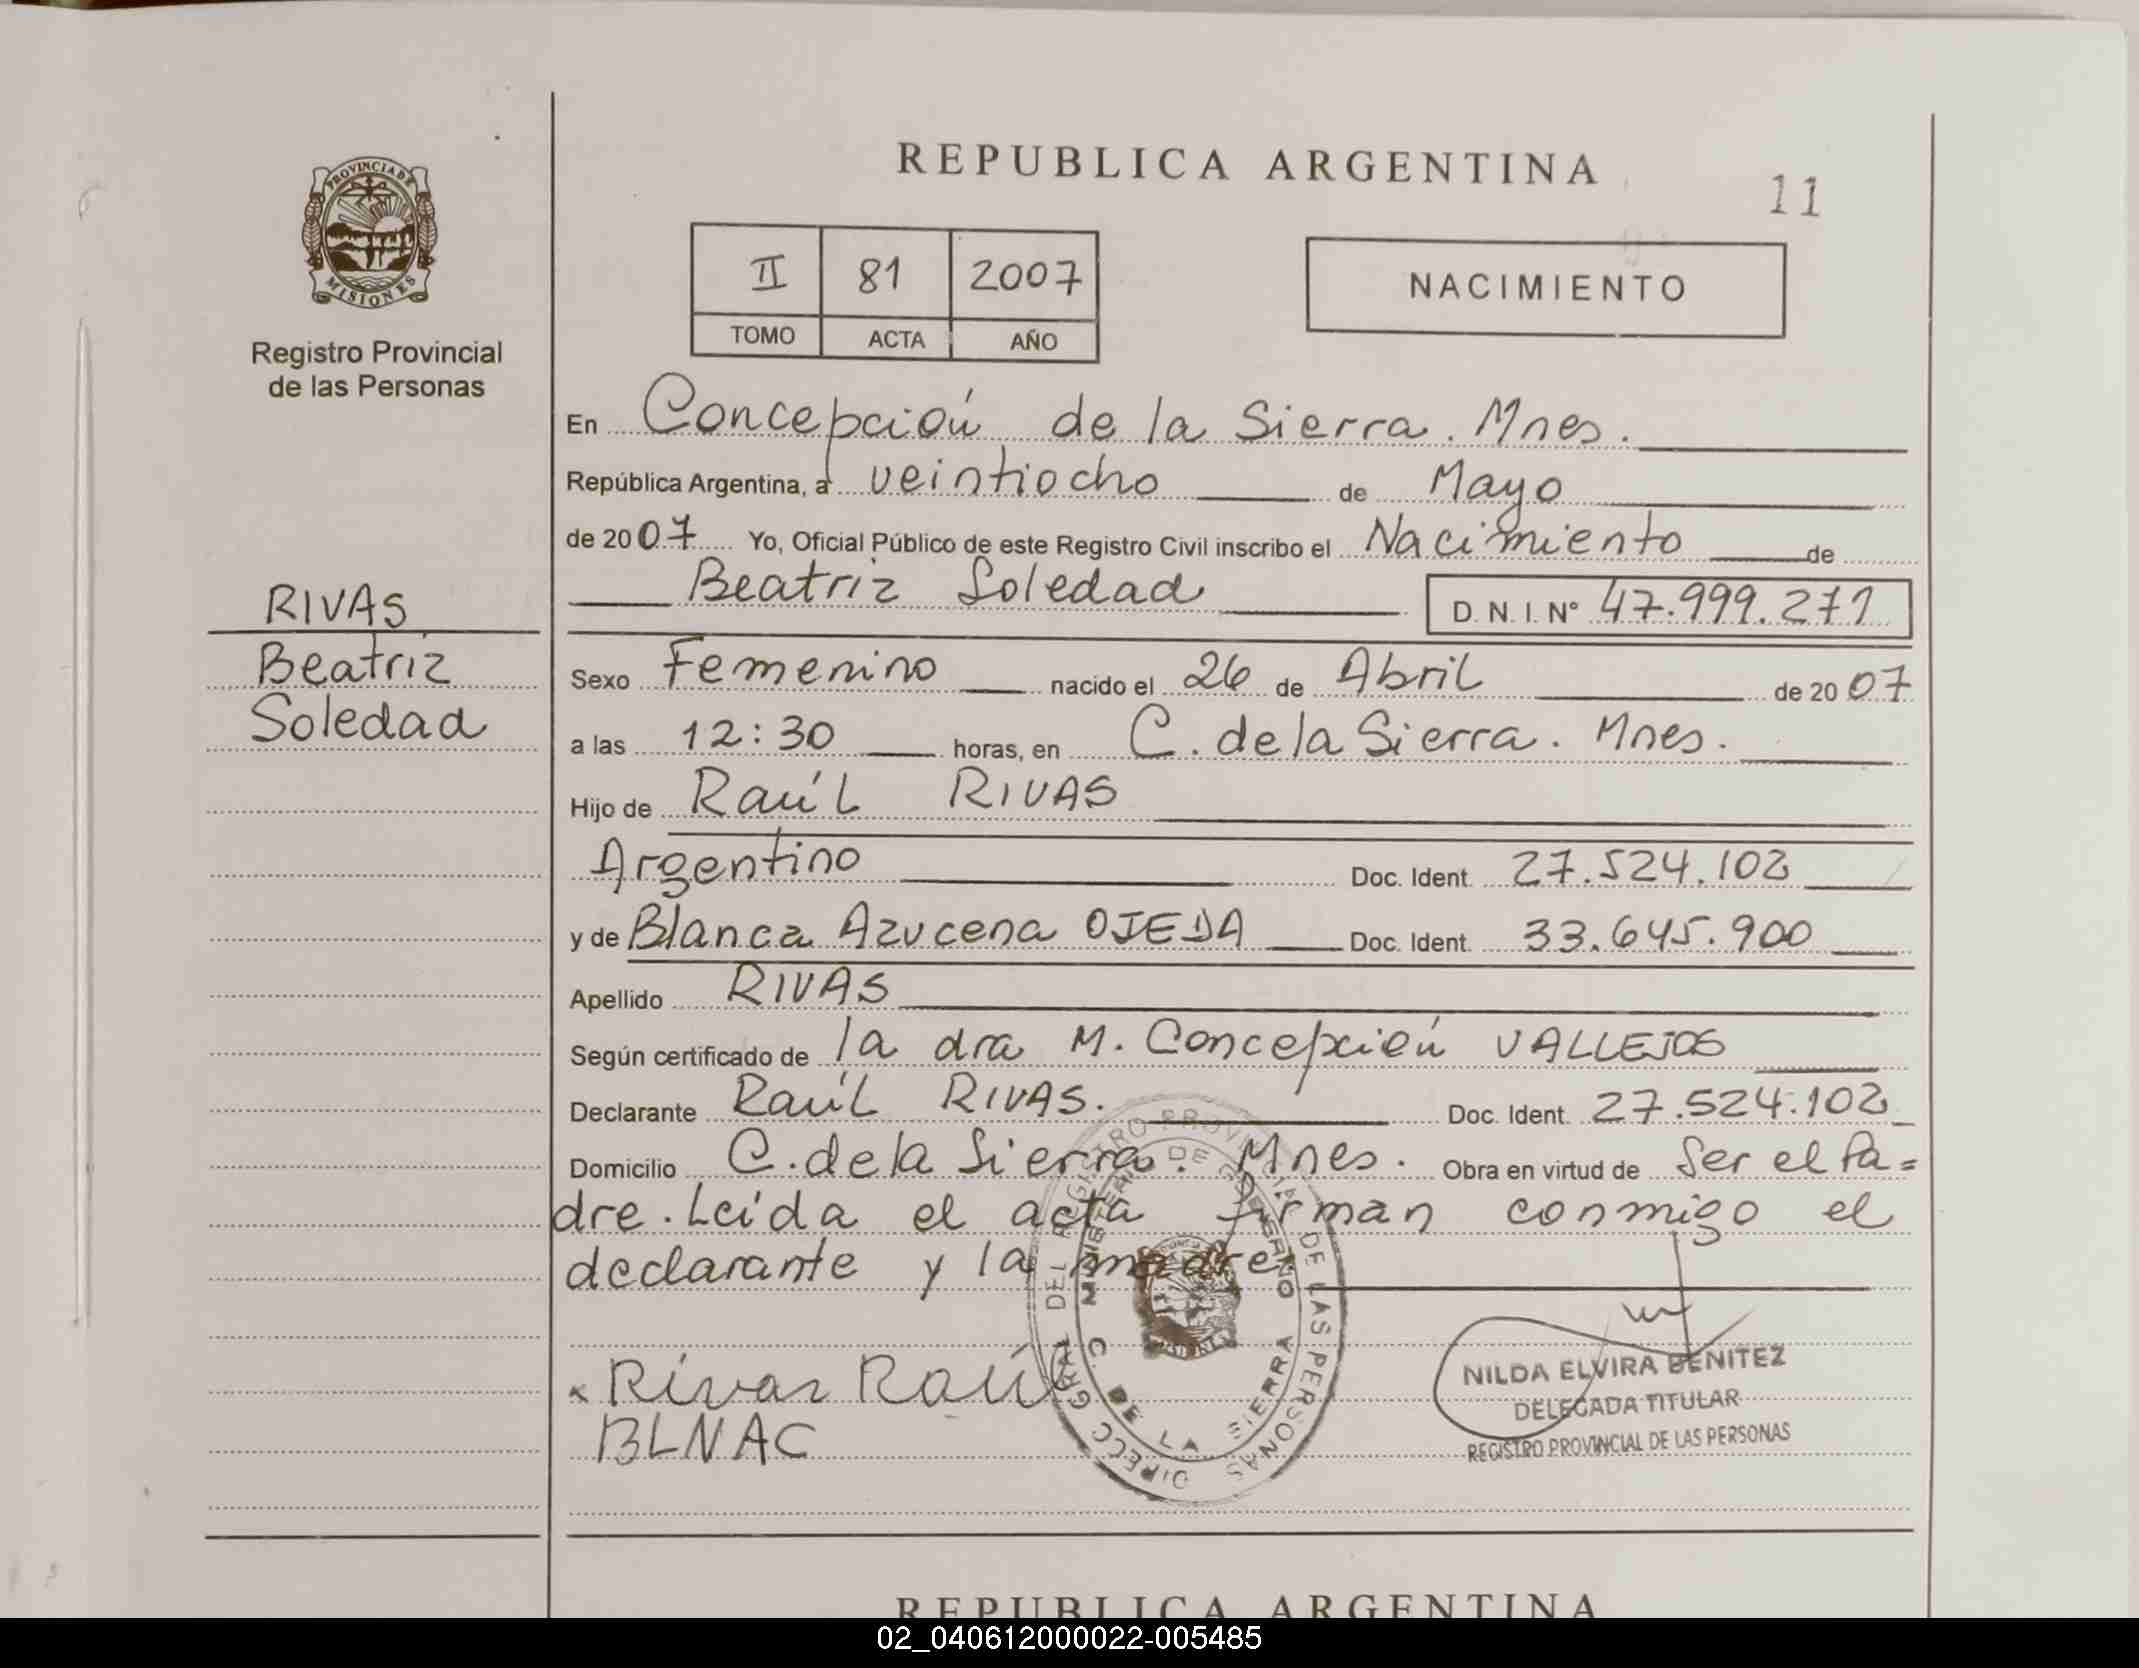 REPUBLICA ARGENTINA
11
PROVINCIA DE
MISIONES
Registro Provincial
de las Personas
II 81 2007
TOMO ACTA AÑO
NACIMIENTO
En Concepción de la Sierra. Mnes.
República Argentina, a veintiocho de Mayo
de 2007 Yo, Oficial Público de este Registro Civil inscribo el Nacimiento de
Beatriz Soledad D. N. I. Nº 47.999.271
RIVAS
Beatriz
Soledad
Sexo Femenino nacido el 26 de Abril de 2007
a las 12:30 horas, en C. de la Sierra. Mnes.
Hijo de Raúl RIVAS
Argentino Doc. Ident. 27.524.102
y de Blanca Azucena OJEDA Doc. Ident. 33.645.900
Apellido RIVAS
Según certificado de la dra M. Concepción VALLEJOS
Declarante Raúl RIVAS. Doc. Ident. 27.524.102
Domicilio C. de la Sierra. Mnes. Obra en virtud de Ser el Pa=
dre. Leída el acta firman conmigo el
declarante y la madre
x Rivas Raúl
BLNAC
DIRECC GRAL DEL REGISTRO PROVINCIAL DE LAS PERSONAS
MINISTERIO DE GOBIERNO
C. DE LA SIERRA
NILDA ELVIRA BENITEZ
DELEGADA TITULAR
REGISTRO PROVINCIAL DE LAS PERSONAS
REPUBLICA ARGENTINA
02_040612000022-005485